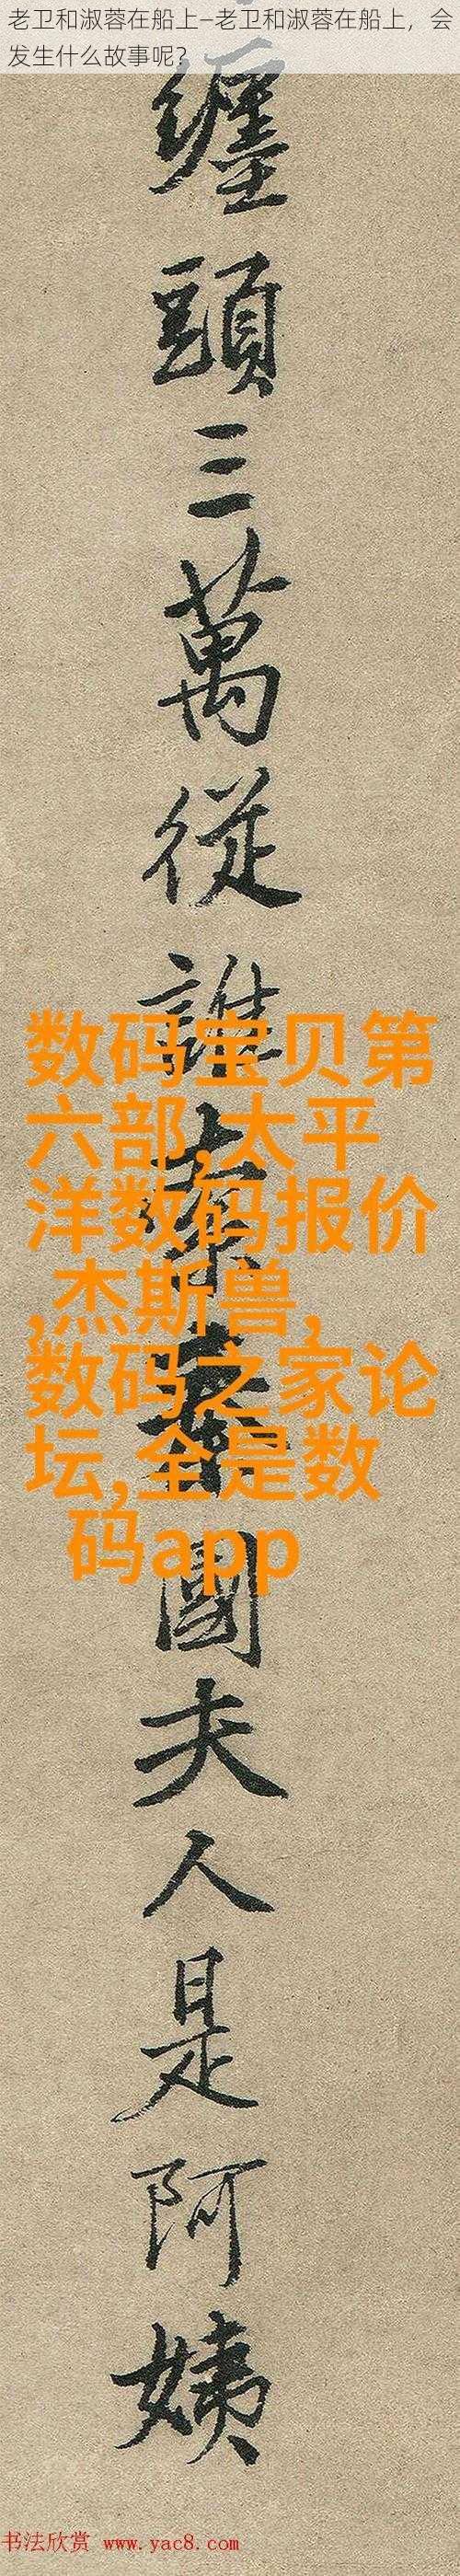 老卫和淑蓉在船上—老卫和淑蓉在船上，会
发生什么故事呢？
纏頭三萬從誰索秦國夫人是阿姨
数码宝贝第
六部,太平
洋数码报价
,杰斯兽,
数码之家论
坛,全是数
码app
书法欣赏 www.yac8.com